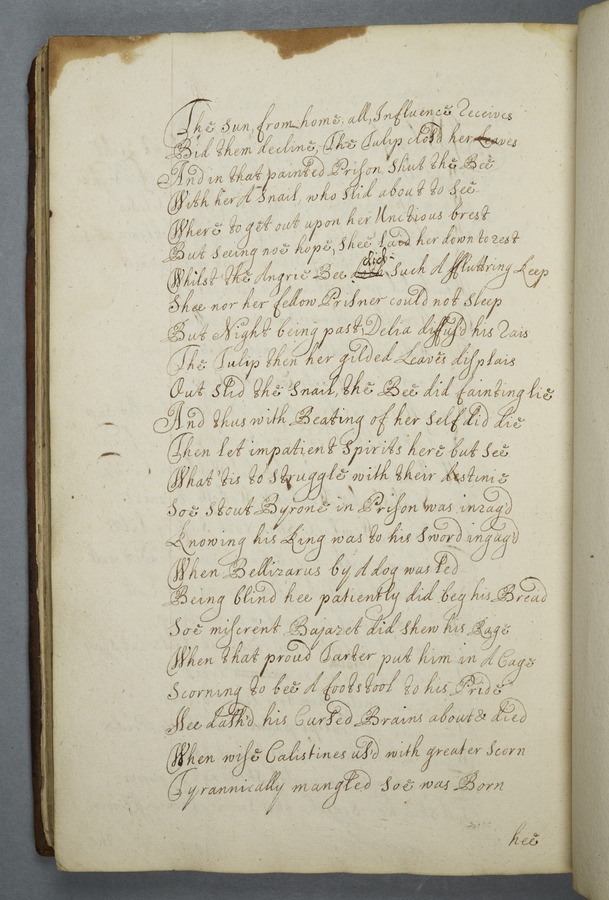 The Sun, from home, all, Influence receives
Bid them decline, The Tulip clos'd her Leaves
And in that painted Prison Shut the Bee
With her A Snail, who slid about to see
Where to get out upon her Unctious brest
But seeing noe hope, shee laid her down to rest
Whilst the Angrie Bee did such A ffluttring keep
Shee nor her fellow Prisner could not sleep
But Night being past, Delia diffus'd his rais
The Tulip then her gilded Leaves displais
Out slid the Snail, the Bee did fainting lie
And thus with Beating of her self did die
Then let impatient Spirits here but see
What 'tis to struggle with their destinie
Soe stout Byrone in Prison was inrag'd
Knowing his King was to his Sword ingag'd
When Bellizarus by A dog was led
Being blind hee patiently did beg his Bread
Soe miscrent Bajazet did shew his Rage
When that proud Tarter put him in A Cage
Scorning to bee A footstool to his Pride
Hee dash'd his Cursed Brains about & died
When wise Calistines us'd with greater scorn
Tyrannically mangled soe was Born
hee